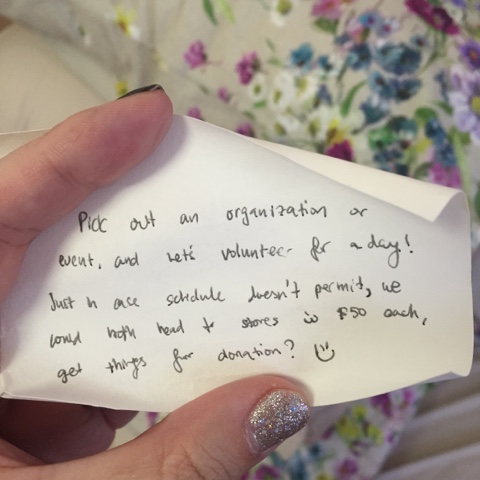 Pick out an organization or
event, and let's volunteer for a day!
Just in case schedule doesn't permit, we
could both head to stores w $50 each,
get things for donation? :)